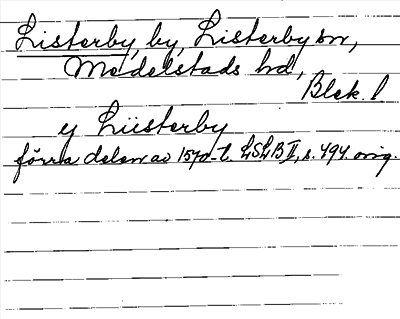 Listerby, by, Listerby sn,
Medelstads hd,
Blek. l
ej Lüsterby
förra delen av 1570-t. LSLB II, s. 494. orig.